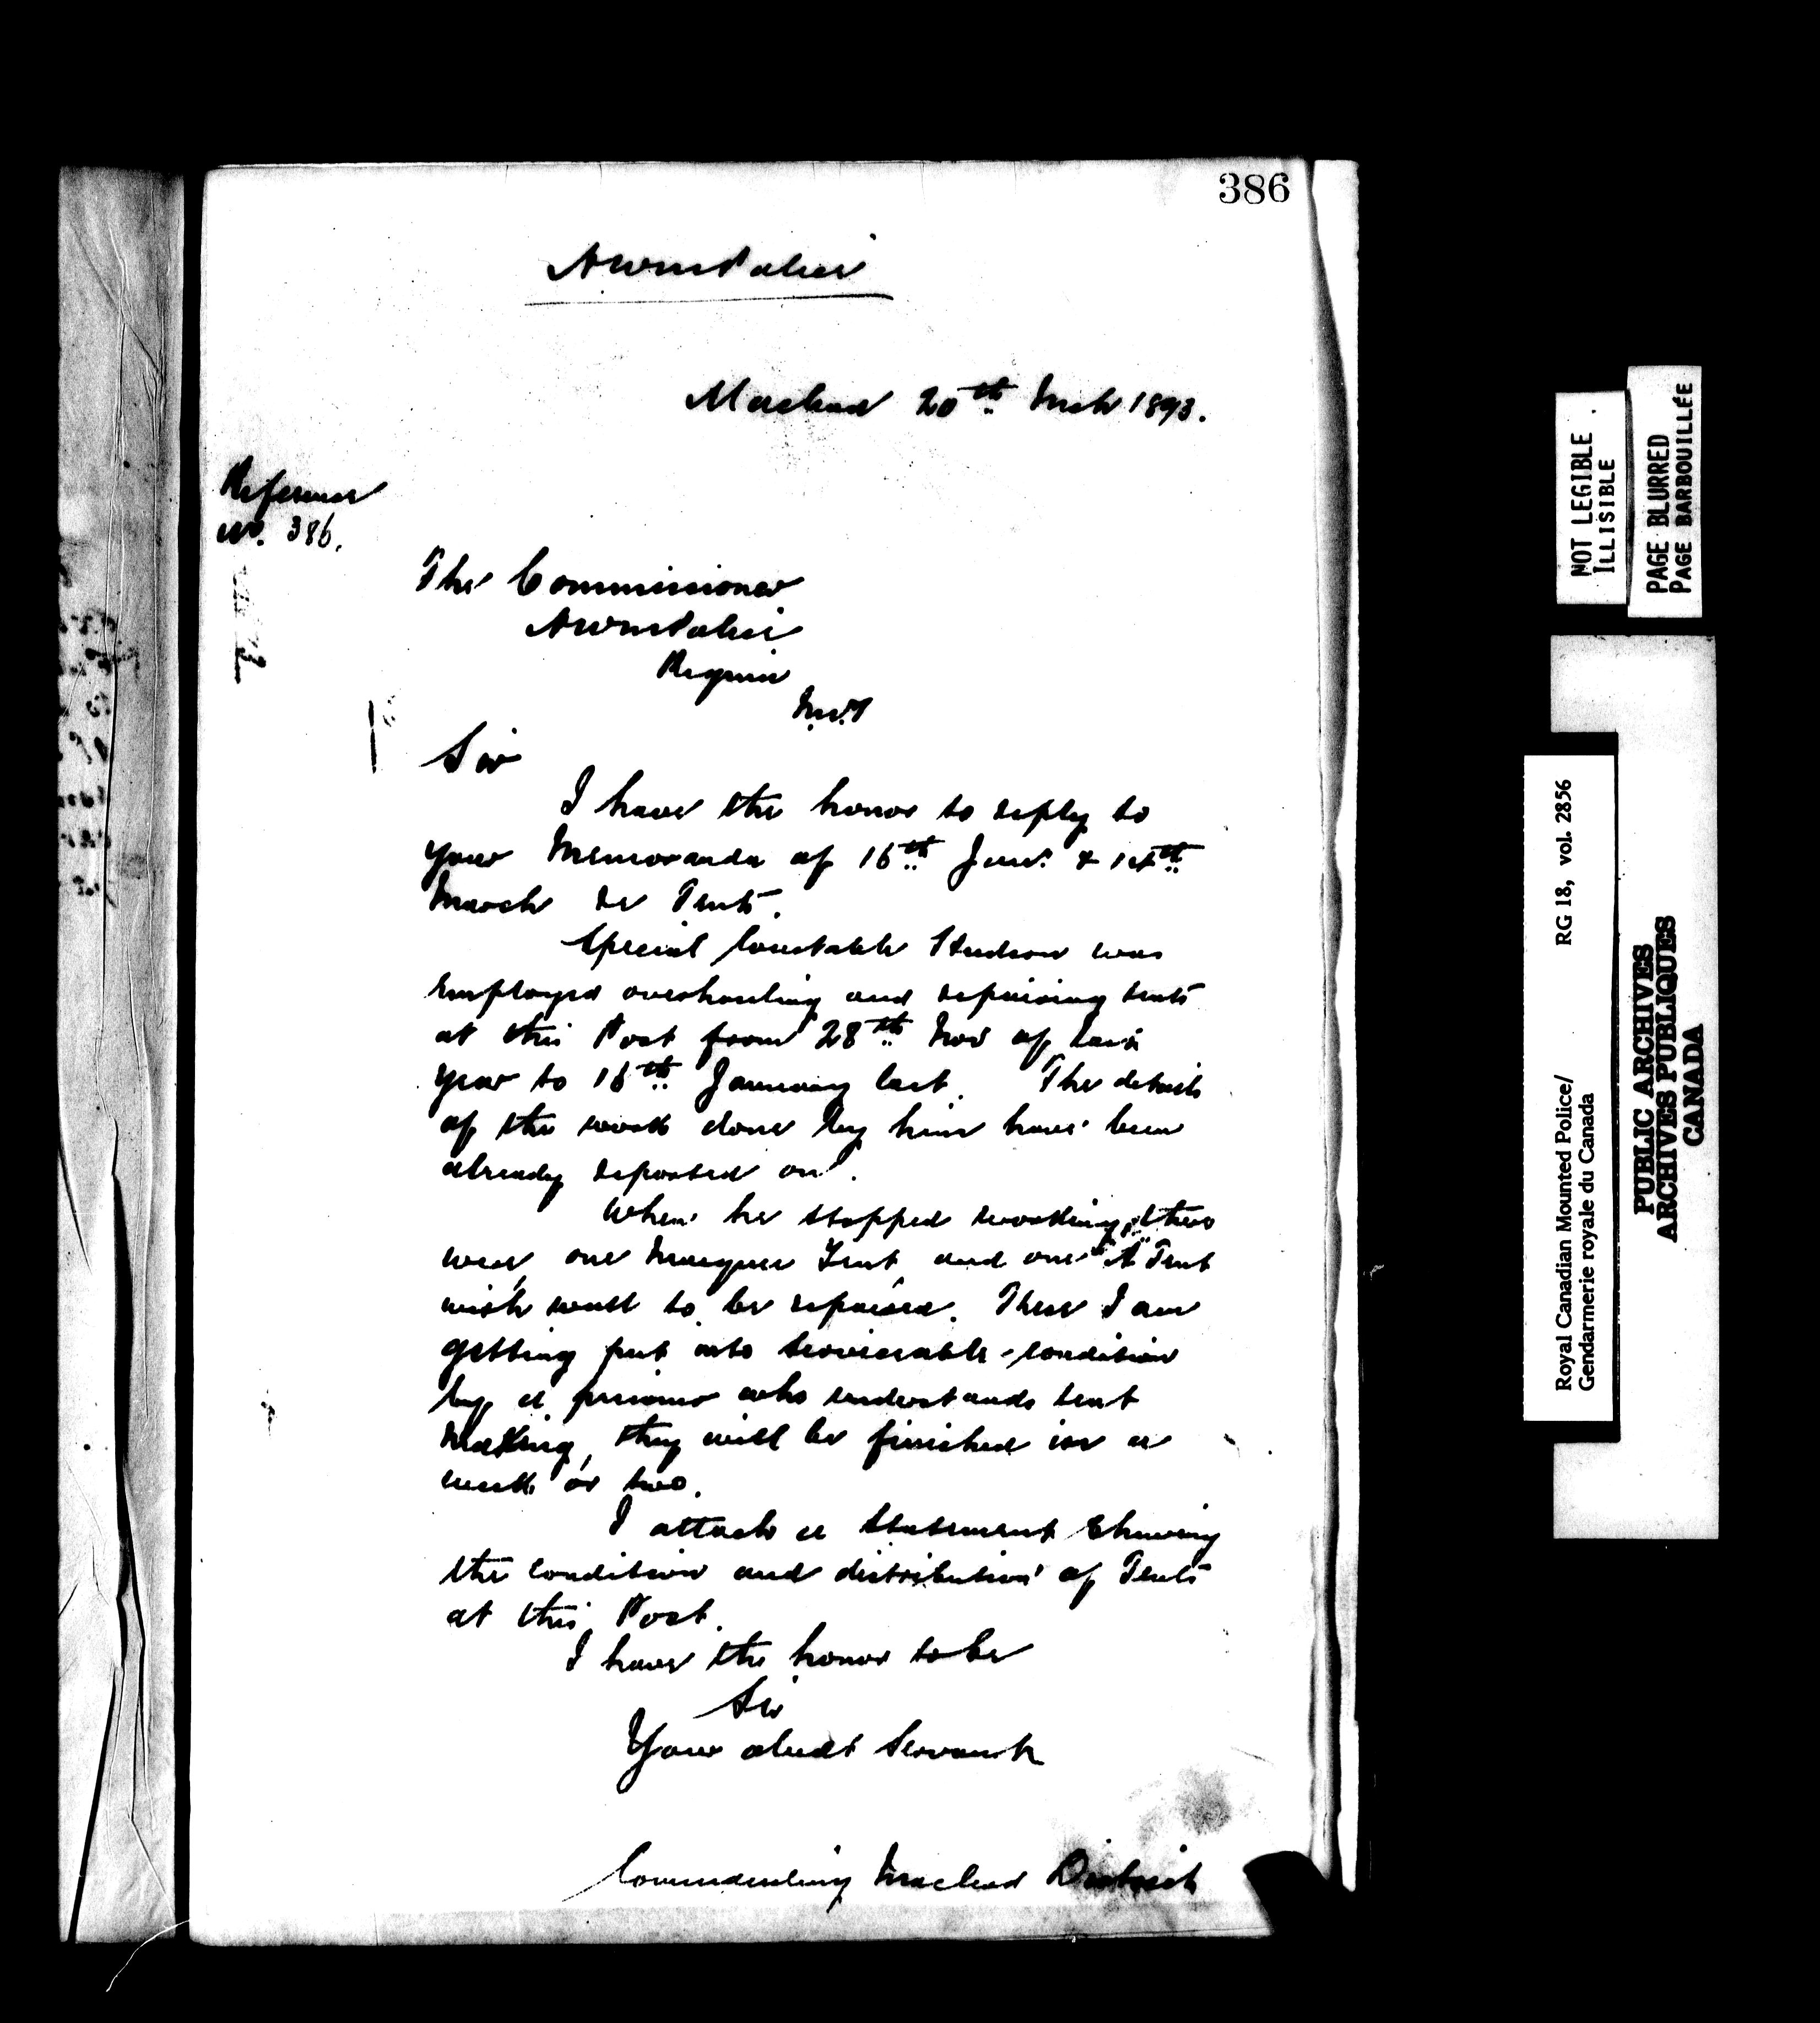 386
N W M Police
Macleod 20th Mch 1893.
Reference
No. 386.
The Commissioner
N W M Police
Regina
N.W.T
Sir
I have the honor to reply to
your Memoranda of 16th Jan. & 14th
March re Tents.
Special Constable Hudson was
employed overhauling and repairing tents
at this Post from 28th Nov of last
year to 16th January last. The details
of the work done by him have been
already reported on.
When he stopped working, there
were, one Marquee Tent, and one "A" Tent
with wall to be repaired. These I am
getting put into serviceable condition
by a prisoner who understands tent
making, they will be finished in a
week or two.
I attach a Statement Shewing
the condition and distribution of Tents
at this Post.
I have the honor to be
Sir
Your obedt Servant
Commanding Macleod District
NOT LEGIBLE
ILLISIBLE
PAGE BLURRED
PAGE BARBOUILLÉE
Royal Canadian Mounted Police/ RG 18, vol. 2856
Gendarmerie royale du Canada
PUBLIC ARCHIVES
ARCHIVES PUBLIQUES
CANADA